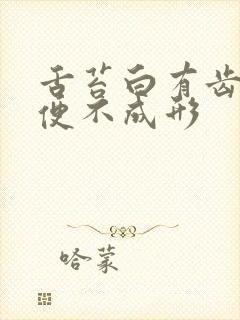 舌苔白有齿
便不成形
哈蒙